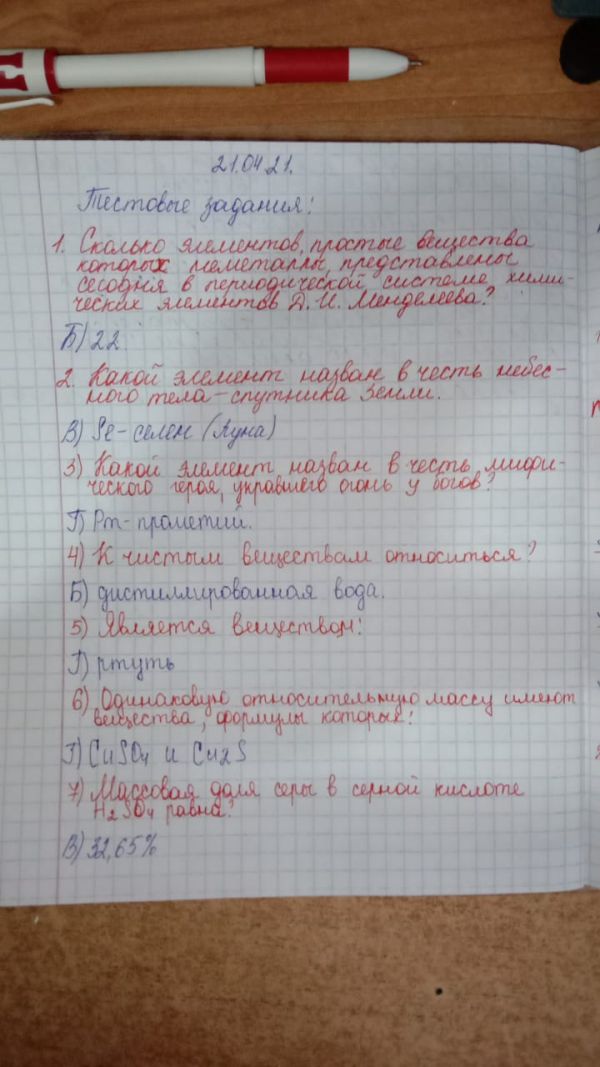 21.04.21.
Тестовые задания:
1. Сколько элементов, простые вещества
которых неметаллы, представлены
сегодня в периодической системе хими-
ческих элементов Д. И. Менделеева?
Б) 22
2. Какой элемент назван в честь небес-
ного тела - спутника Земли.
В) Se - селен (Луна)
3) Какой элемент назван в честь мифи-
ческого героя, укравшего огонь у богов?
Г) Pm - прометий.
4) К чистым веществам относиться?
Б) дистиллированная вода.
5) Является веществом:
Г) ртуть
6) Одинаковую относительную массу имеют
вещества, формулы которых:
Г) CuSO4 и Cu2S
7) Массовая доля серы в серной кислоте
H2SO4 равна?
В) 32,65%